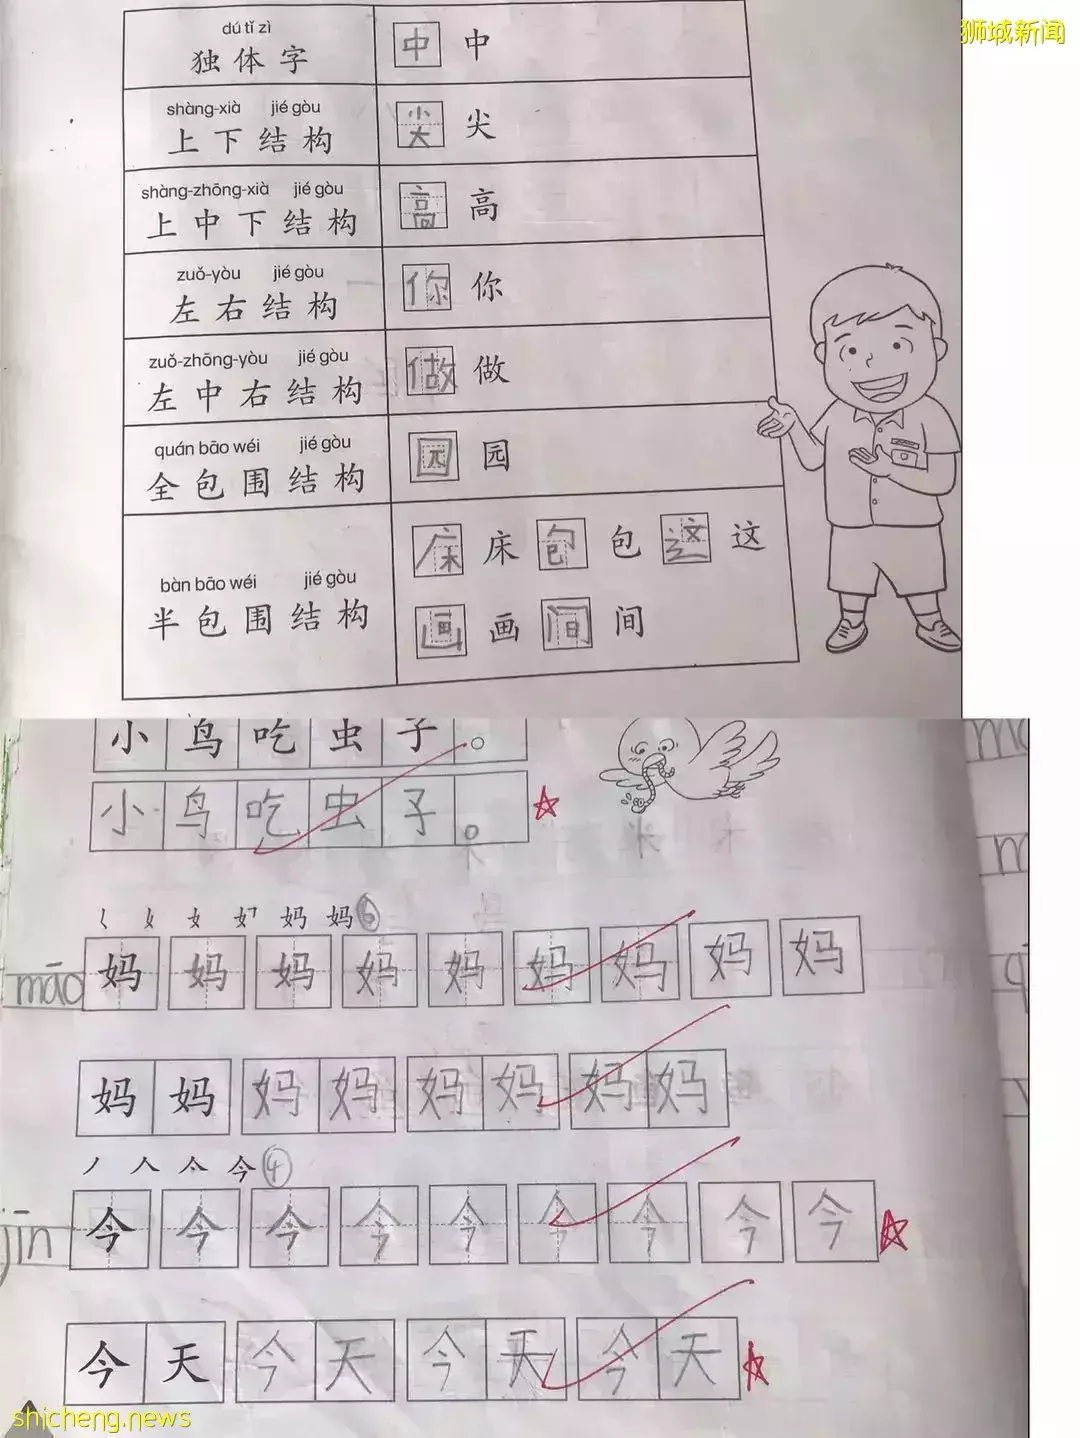 狮城新闻
dú tǐ zì
独体字 中 中
shàng-xià jié gòu
上下结构 尖 尖
shàng-zhōng-xià jié gòu
上中下结构 高 高
zuǒ-yòu jié gòu
左右结构 你 你
zuǒ-zhōng-yòu jié gòu
左中右结构 做 做
quán bāo wéi jié gòu
全包围结构 园 园
床 床 包 包 这 这
bàn bāo wéi jié gòu
半包围结构
画 画 间 间
小鸟吃虫子。
小鸟吃虫子。
妈 妈 6
māo 妈 妈 妈 妈 妈 妈 妈 妈 妈
妈妈 妈妈 妈妈 妈妈
丿 人 亼 今 4
jīn 今 今 今 今 今 今 今 今 今
今天 今天 今天 今天
shicheng.news